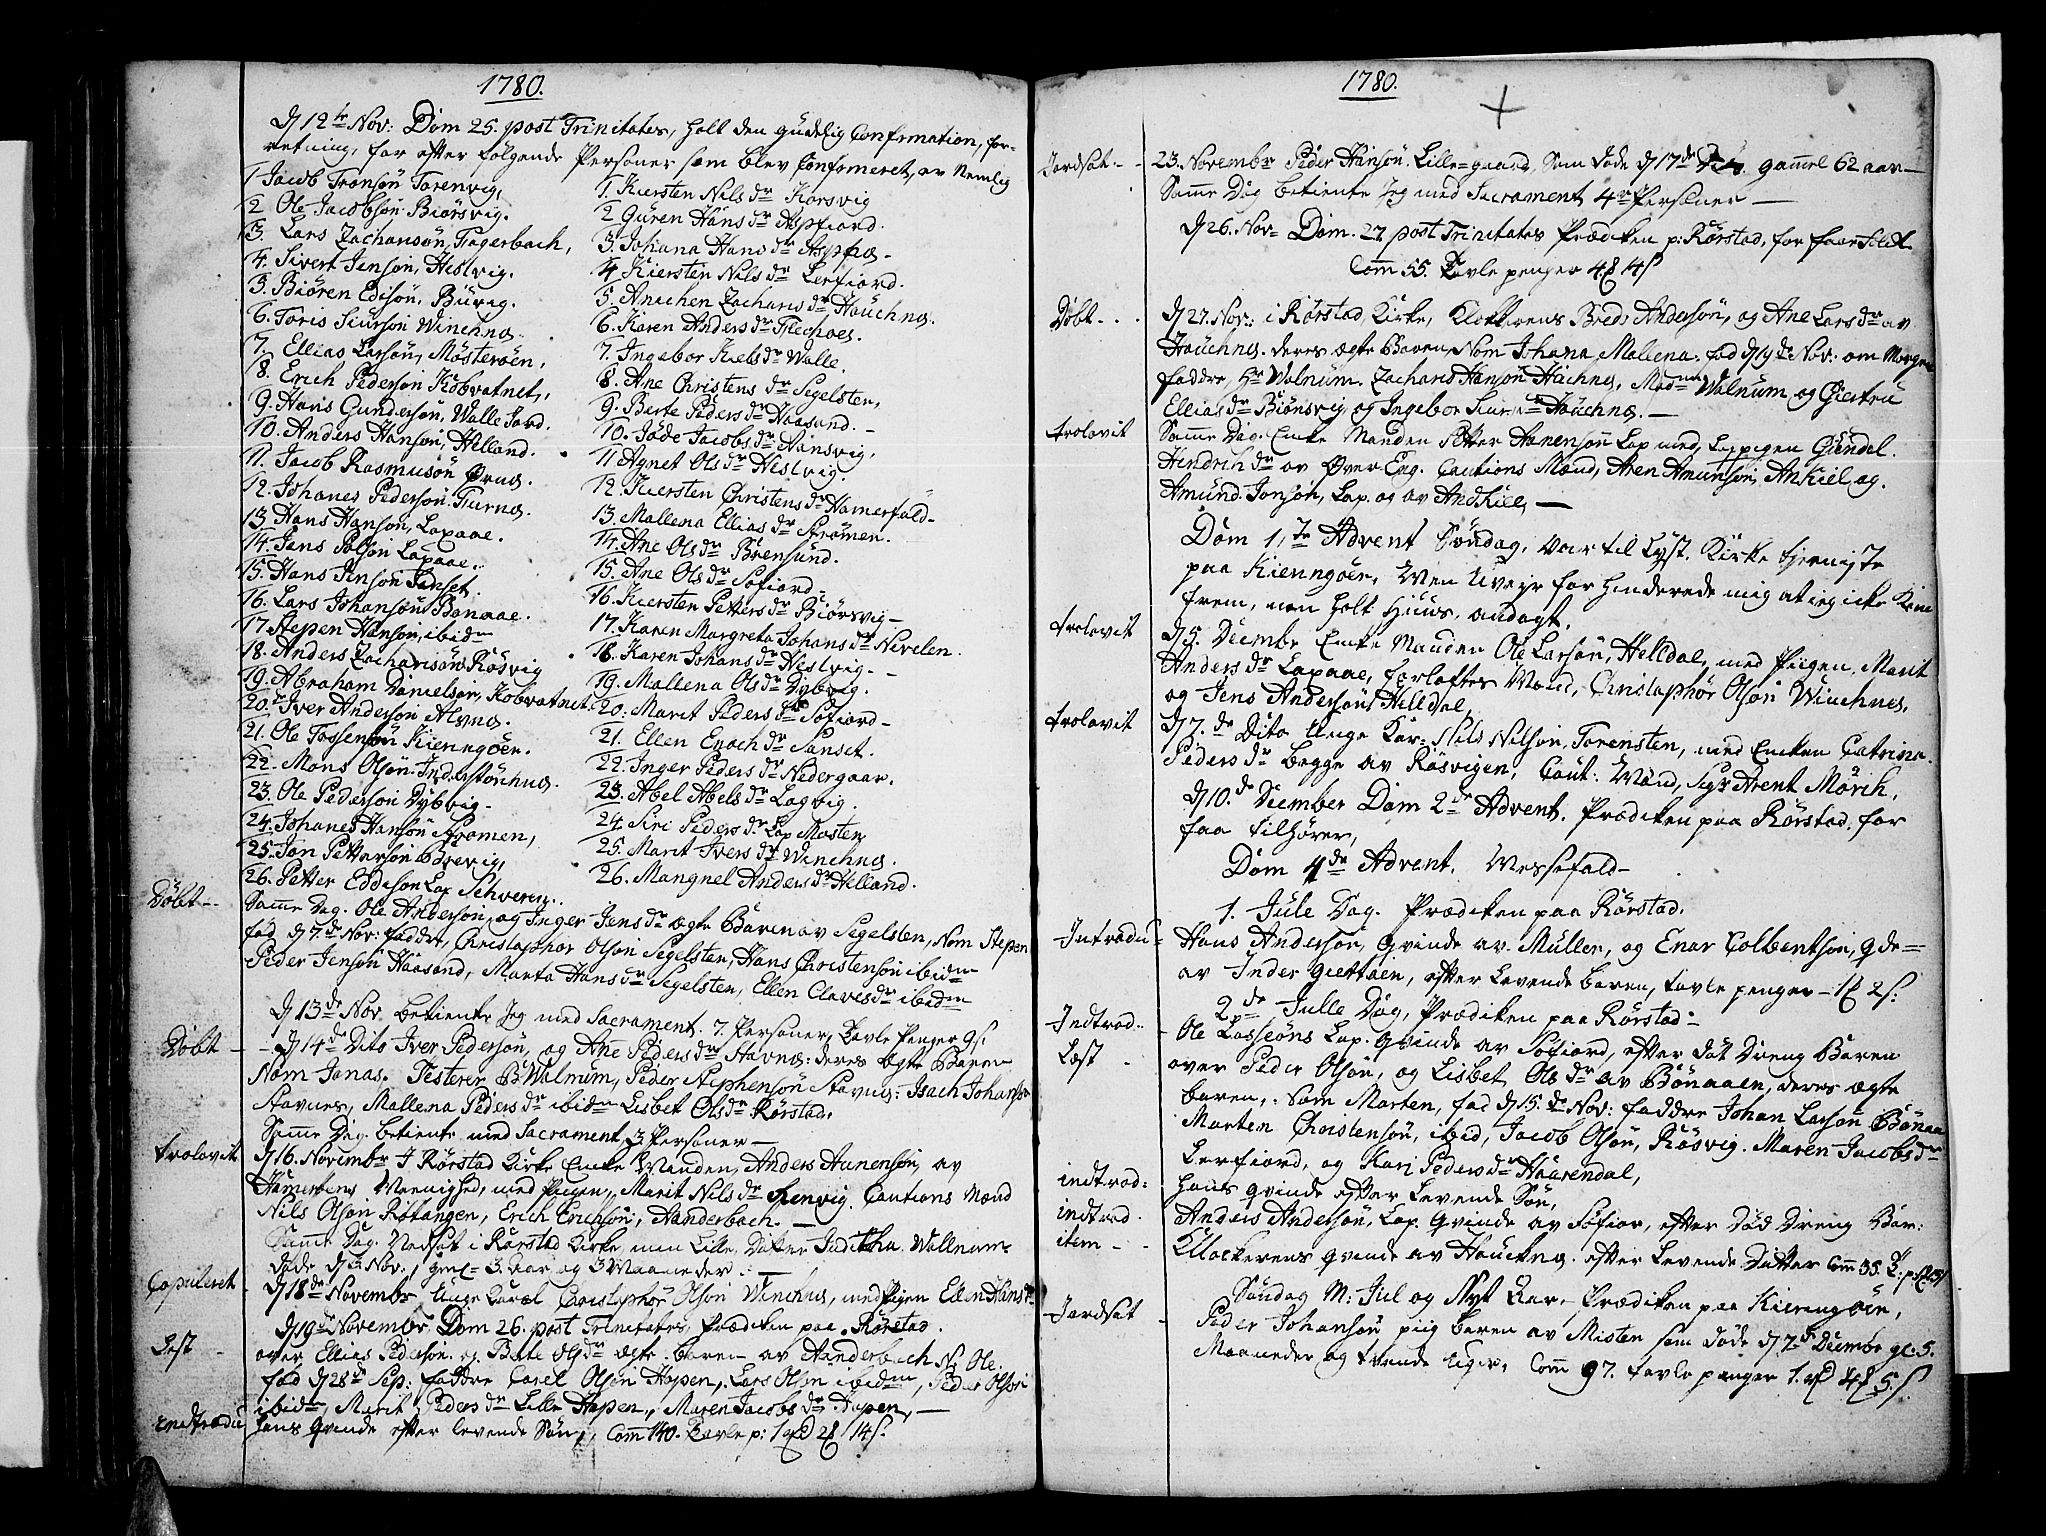 1780.
D 12te Nov: Dom 25. post Trinitates, holt den gudelig Confirmation, for-
retning, for efter følgende Personer som blev Confirmeret, av Nemlig
1 Jacob Tronsøn Torenvig,
2 Ole Jacobsøn Biørsvig.
3. Lars Zachansøn, Fagerbach,
4. Sivert Jensøn, Heslvig.
5. Biøren Edisøn, Buvig.
6. Toris Siursøn Winchnes.
7. Ellias Larsøn, Møsterøen,
8. Erich Pedersøn Kobvatnet,
9. Hans Gundersøn, Walle Jord.
10. Anders Hansøn, Helland.
11. Jacob Rasmusøn Ørnes.
12. Johanes Pedersøn Furnes.
13. Hans Hansøn, Laxaae.
14. Jens Polsøn Laxaae.
15. Hans Jensøn Sanset.
16. Lars Johansøn Bonaae.
17 Stepen Hansøn, ibidm
18. Anders Zacharisøn Røsvig
19. Abraham Danielsøn, Kobvatnet
20. Iver Andersøn Alvnes.
21. Ole Tossensøn Kienngøen.
22. Mons Olsøn
23. Ole Pedersøn Dybvig.
24. Johanes Hansøn Strømen,
25. Jon Pettersøn Brevig,
26. Petter Eddisøn Lap
1. Kiersten Nils dr Korsvig
2 Guren Hans dr Aspfiord.
3. Johana Hans dr Aspfio.
4 Kiersten Nils dr Lerfiord.
5. Anichen Zacharis dr Houchnes.
6. Karen Anders dr
7. Ingebor Kiels dr Walle.
8. Ane Christens dr Segelsten,
9. Berte Peders dr Haasand.
10. Jøde Jacobs dr Hansvig,
11 Agnet Ols dr Heslvig.
12. Kiersten Christens dr Hamerfald
13. Mallena Ellias dr Strømen.
14. Ane Ols dr Børensund.
15. Ane Ols dr Sofiord.
16. Kiersten Petters dr Biørsvig
17. Karen Margreta Johans dr Nevelen.
18. Karen Johans dr Heslvig.
19. Mallena Ols dr Dybvig.
20. Marit Peders dr Sofiord
21. Ellen Enoch dr Sanset.
22. Inger Peders dr Nedergaar.
23. Abel Abels dr Lagvig.
24. Siri Peders dr Lap Mosten
25. Marit Ivers dr Winchnes.
26. Mangnel Anders dr Helland.
Døbt Same Dag. Ole Andersøn, og Inger Jens dr Ægte Baren av Segelsten, Nom Stepen
fød D 7de Nov: faddre, Christophor Olsøn Segelsten, Hans Christensøn ibidm
Peder Jensøn Haasand, Marta Hans dr Segelsten, Ellen Claves dr ibidm
D 13de Nov betiente Jeg med Sacrament. 7. Personer, Tavle Penger 9s
Døbt D 14de Dito Iver Pedersøn, og Ane Peders dr Stavnes: deres Ægte Baren
Nom Jonas. Testerer B Walnum, Peder Stephensøn Stavnes: Isach Johansøn
Stavnes, Mallena Peders dr ibidm Lisbet Ols dr Rørstad.
Same Dag. betiente med Sacrament 3 Personer
trolovit D 16. Novembr I Rørstad Kirke Encke Manden, Anders Aunensøn, av
med Pigen, Marit Nils dr Cautions Mænd
Nils Olsøn Røtangen, Erich Erichsøn, Aanderbach.
Same Dag. Nedsat i Rørstad Kirke, min Lille Datter Juditha Wallnum
døde Nov:, gml 3. Aar og 3 Maaneder
Copuleret D 18de Novembr Unge Karel Christophor Olsøn Winchnes, med Pigen Ellen Hans dr
D 19de Novembr Dom 26. post Trinitates, Prædiken paa Rørstad.
Lest over Ellias Pedersøn og Berte Ols dr Ægte baren av Aanderbach N: Ole.
fød D 28de Sep: faddre Carel Olsøn Hopen, Lars Olsøn ibidm, Peder Olsøn
ibidm, Marit Peders dr Lille Hopen, Maren Jacobs dr Hopen,
Indtrodu hans Qvinde efter levende Søn, Com 140. Tavle p:
1780.
Jordsat 23. Novembr Peder Hansøn Lille-gaard, Som døde D 17de gamel 62 aar
Same Dag betiente Jeg med Sacrament 4re Personer
D 26. Nov Dom. 27 post Trinitates Prædiken p: Rørstad, for faar folck
Com 55. Tavle penger
Døbt D 27. Nov: i Rørstad Kirke, Klokkerens Breds Andersøn, og Ane Lars dr av
Houchnes. deres Ægte Baren Nom Johana Mallena. fød D 19de Nov: om Morgen
faddre, Hr Walnum. Zacharis Hansøn Houchnes, Madme Walnum, og Giertru
Ellias dr Biørsvig og Ingebor Siurs dr Houchnes.
trolovit Same Dag. Encke Manden Petter Hanensøn Lap med Lappigen Gundel.
Hendrich dr av Øver Eng. Cautions Mænd, Aren Amunsøn, Ankiel og.
Amund. Jonsøn, Lap. og av Andkiell
Dom 1te Advent Søndag. var til Lyst. Kirke tieniste
paa Kienngøen, Men Uveyr for hinderede mig at ieg icke kom
frem, men holt Huus. andagt.
trolovit D 5. Decembr Encke Manden Ole Larsøn, Helldal, med Pigen, Marit
Anders dr Laxaae, forlofter Mænd, Christophor Olsøn Winchnes,
og Jens Andersøn Helldal,
trolovit D 7. de Dito Unge Kar: Nils Nilsøn, Torensten, med Encken Catrina
Peders dr begge av Røsvigen, Caut: Mænd, Sigr Arent Mørch,
D 10. de December Dom 2de Advent. Prædiken paa Rørstad. for
faa tilhører,
Dom 4de Advent. Messefald
1. Jule Dag. Prædiken paa Rørstad.
Introdu Hans Andersøn, Qvinde av Müller, og Enar Colbentsøn, Qde
av Inder Giettøen, efter Levende baren, tavle penger
2de Julle Dag, Prædiken paa Rørstad
Indtrod: Ole Lassesøns Lap. Qvinde av Sofiord, efter død Dreng Baren
Læst over Peder Olsøn, og Lisbet Ols dr av Bønaaen, deres Ægte
baren,. Nom Morten, fød D 15. de Nov: faddre Johan Larsøn Bønaa
Morten Christensøn, ibid, Jacob Olsøn, Røsvig. Maren Jacobs dr
Lerfiord, og Kari Peders dr Haarendal,
indtrod: hans Qvinde efter Levende Søn,
indtrod Anders Andersøn, Lap. Qvinde av Sofior, efter Død Dreng Bar:
item Klockerens Qvinde av Houcknes. efter Levende Datter Com 35.
Søndag M: Jul og Nyt Aar. Prædiken paa Kienngøen,
Jordsat Peder Johansøn piig baren av Misten som døde D 7de Decembr gl: 5.
Maaneder og trende Uger, Com 97. tavle penger